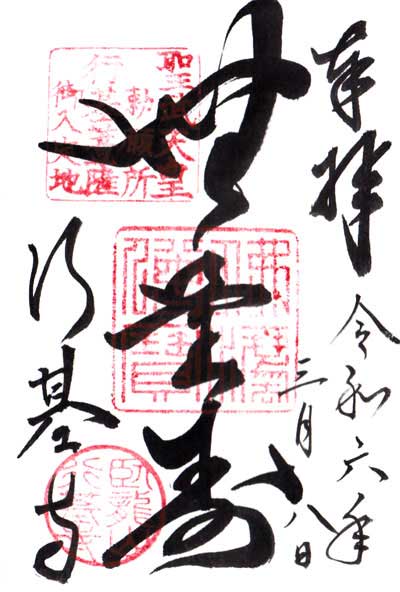 奉拝
令和六年
三月十八日
無量寿
行基寺
聖武天皇
勅願所
行基菩薩
御入定地